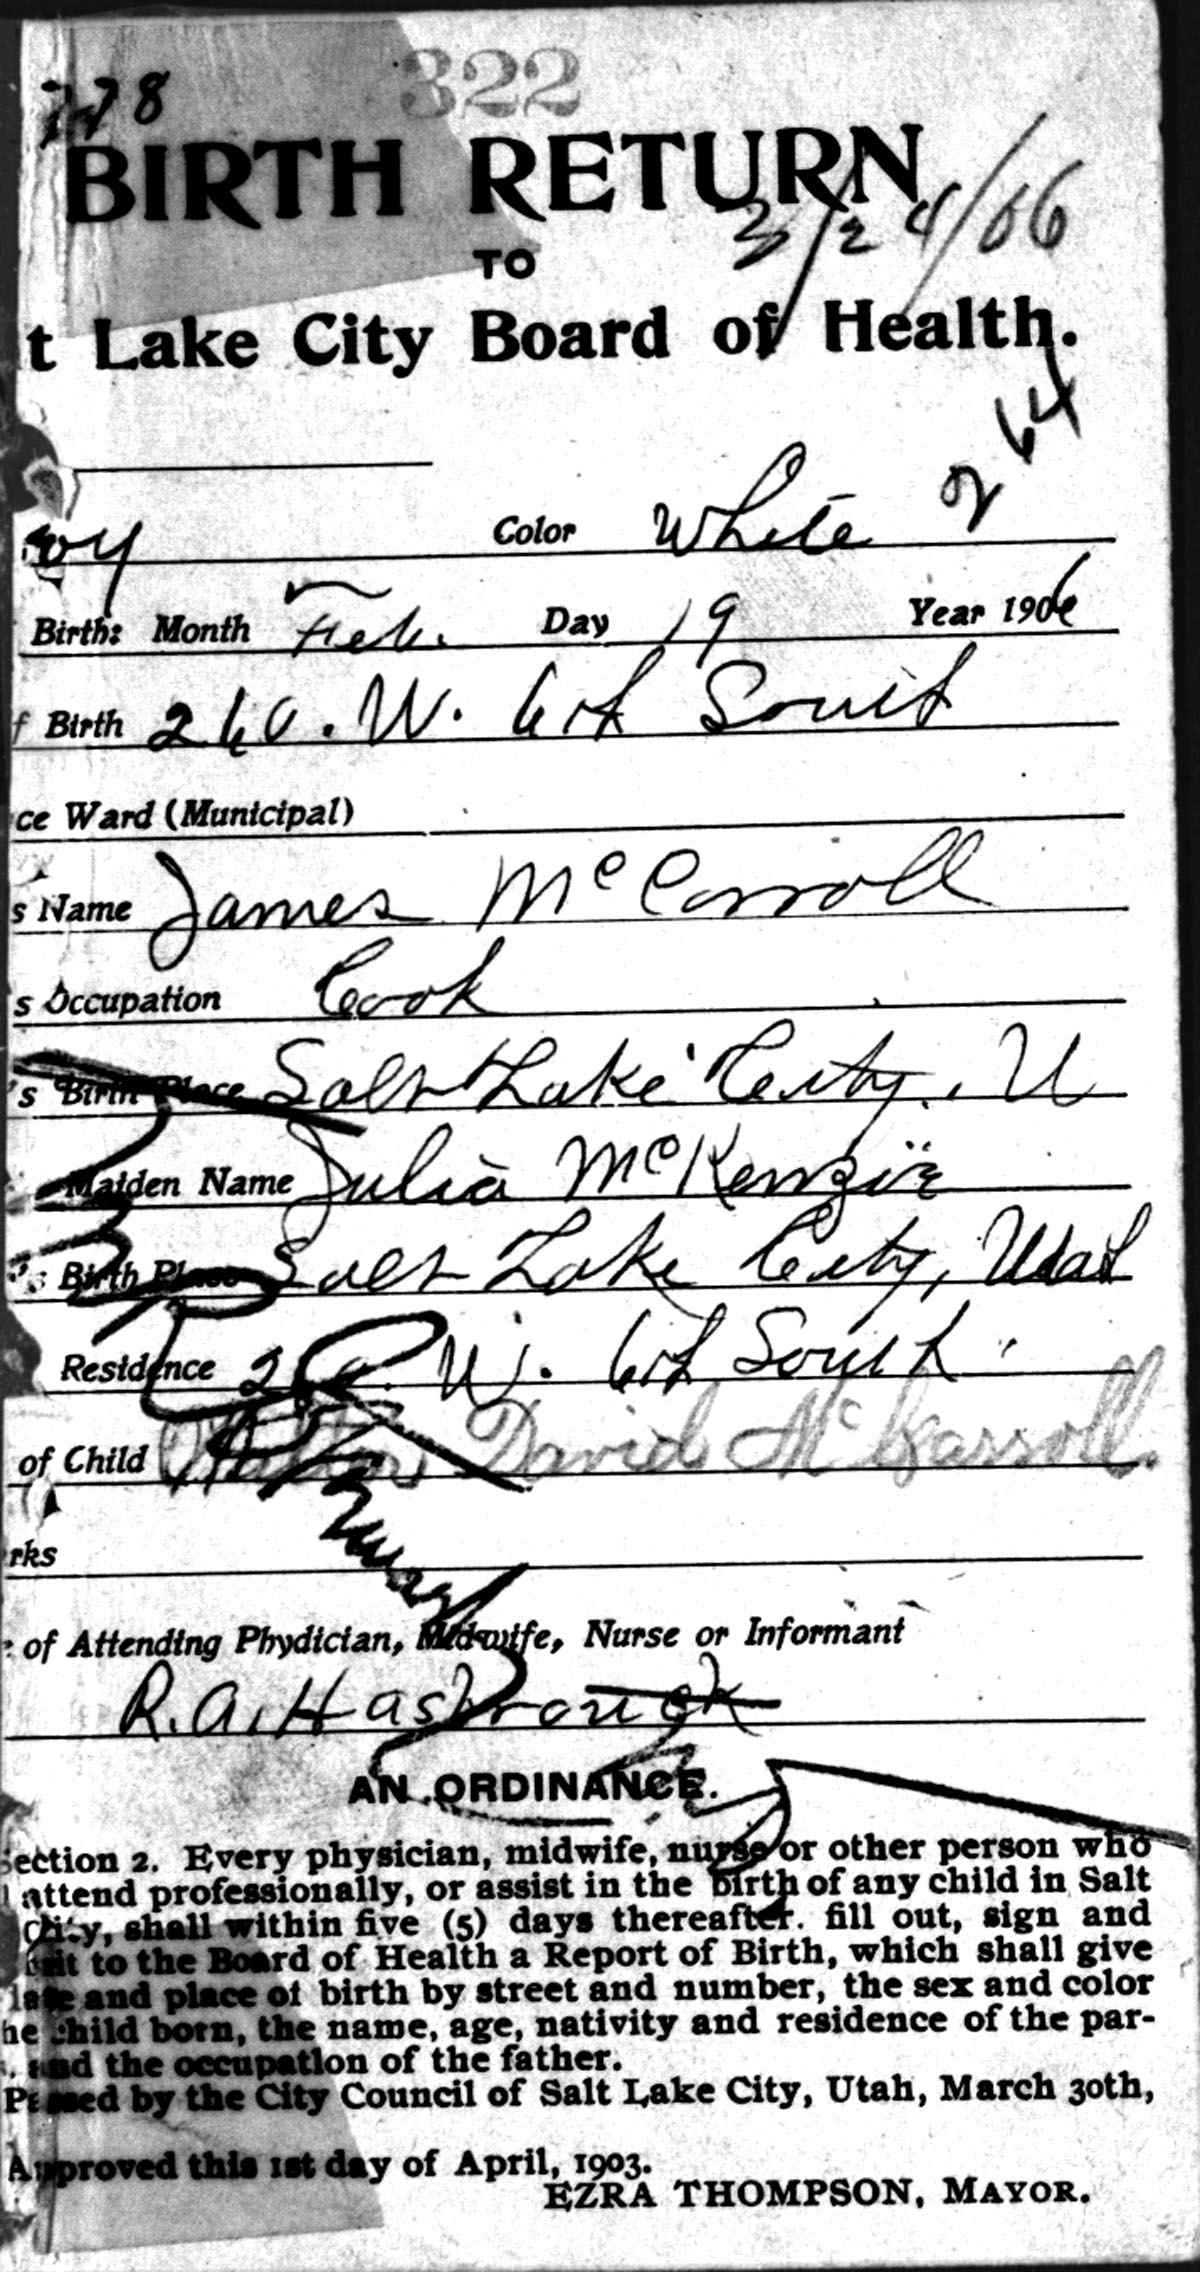 322
BIRTH RETURN
3/24/06
TO
t Lake City Board of Health.
264
oy Color White
Birth: Month Feb. Day 19 Year 1906
f Birth 260. W. 6th South
ce Ward (Municipal)
s Name James McCarroll
s Occupation Cook
's Birth Place Salt Lake City, U
Maiden Name Julia McKenzie
's Birth Place Salt Lake City, Utah
Residence W. 6th South
of Child David McCarroll.
rks
of Attending Phydician, Midwife, Nurse or Informant
R.A. Hasbrouck
AN ORDINANCE.
ection 2. Every physician, midwife, nurse or other person who
attend professionally, or assist in the birth of any child in Salt
City, shall within five (5) days thereafter. fill out, sign and
it to the Board of Health a Report of Birth, which shall give
late and place of birth by street and number, the sex and color
he child born, the name, age, nativity and residence of the par-
. and the occupation of the father.
Passed by the City Council of Salt Lake City, Utah, March 30th,
Approved this 1st day of April, 1903.
EZRA THOMPSON, MAYOR.